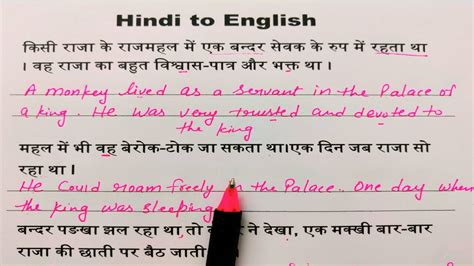 Hindi to English
किसी राजा के राजमहल में एक बन्दर सेवक के रुप में रहता था
। वह राजा का बहुत विश्वास-पात्र और भक्त था ।
A monkey lived as a servant in the Palace of
a king. He was very trusted and devoted to
the king
महल में भी वह बेरोक-टोक जा सकता था।एक दिन जब राजा सो
रहा था ।
He Could roam freely in the Palace.. One day when
the king was sleeping
बन्दर पङखा झल रहा था, तो ने देखा, एक मक्खी बार-बार
राजा की छाती पर बैठ जाती